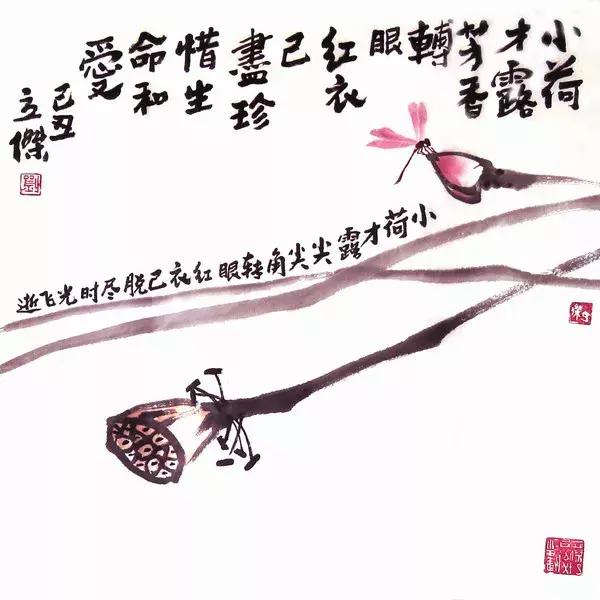 小荷
才露
芳香
轉
眼
红衣
已
盡珍
惜生
命和
愛
己丑
立傑
劉
小荷才露尖尖角转眼红衣已脱尽时光飞逝